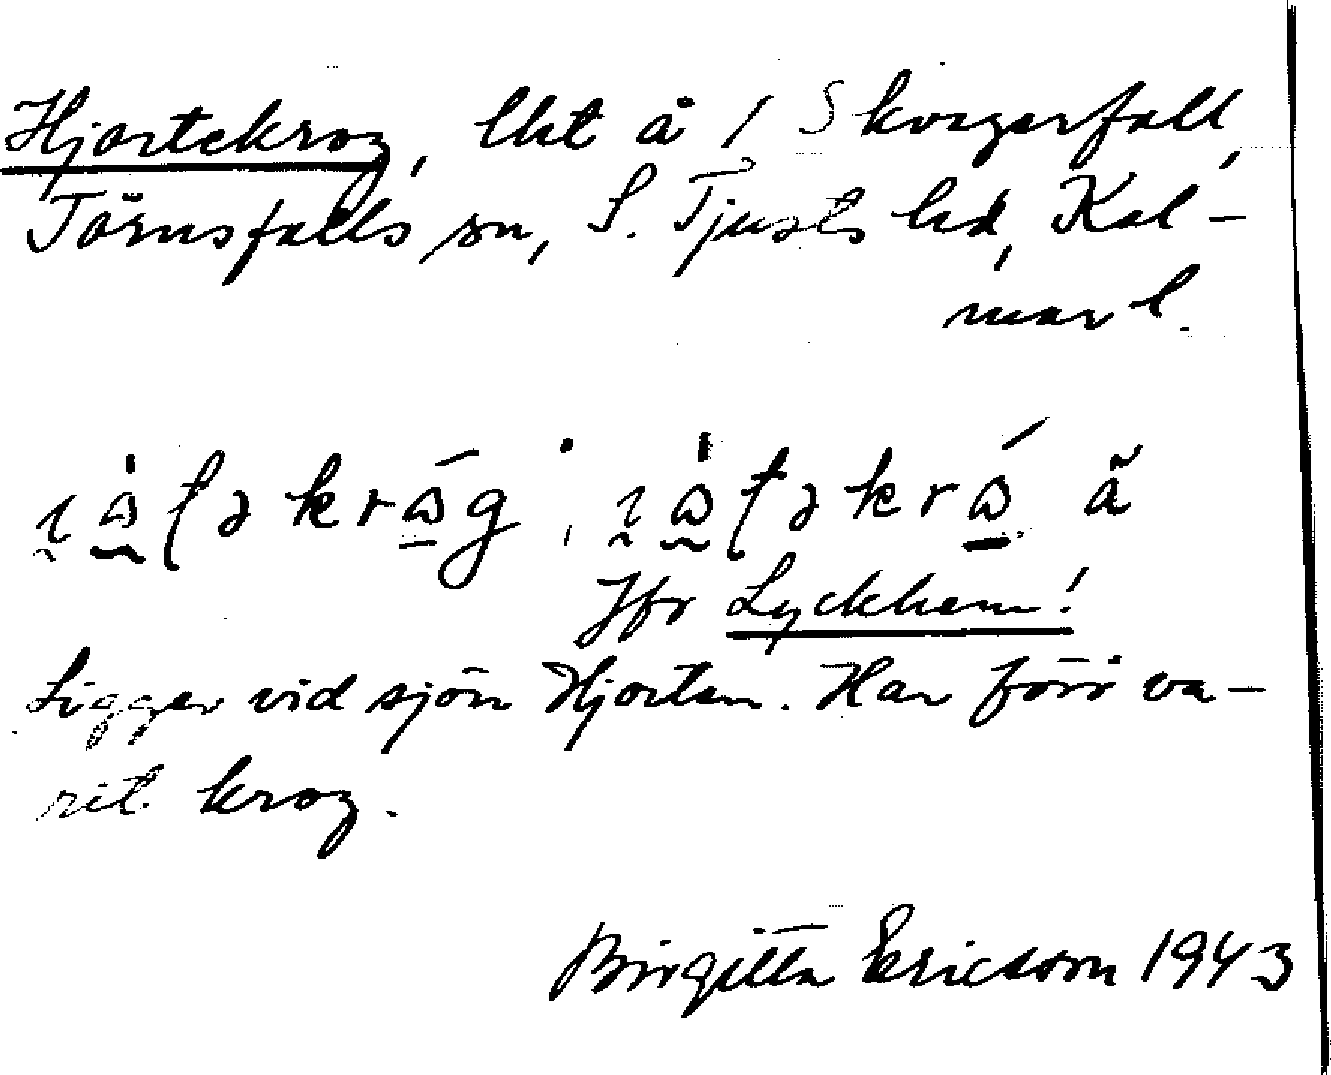 Hjortekrog, lht å 1 Skogerfall,
Törnsfalls sn, S. Tjusts hd, Kal-
mar l.
Jfr Lyckhem!
Ligger vid sjön Hjorten. Har förr va-
rit krog.
Birgitta Ericsson 1943